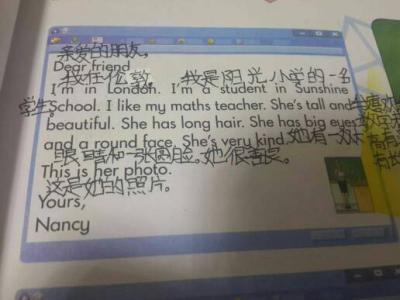 亲爱的朋友,
Dear friend
我在伦敦, 我是阳光小学的一名
I'm in London. I'm a student in Sunshine
学生。
School. I like my maths teacher. She's tall and
beautiful. She has long hair. She has big eyes
and a round face. She's very kind. 她有一双大
眼睛和一张圆脸。她很善良。
This is her photo.
这是她的照片。
Yours,
Nancy